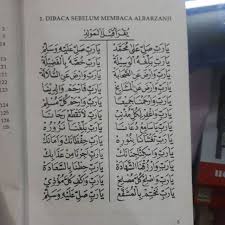 1. DIBACA SEBELUM MEMBACA ALBARZANJI
يقرأ قبل المولد
يَارَبِّ صَلِّ عَلَى مُحَمَّدْ يَارَبِّ صَلِّ عَلَيْهِ وَسَلِّمْ
يَارَبِّ بَلِّغْهُ الْوَسِيْلَةْ يَارَبِّ خُصَّهُ بِالْفَضِيْلَةْ
يَارَبِّ وَارْضَ عَنِ الصَّحَابَةْ يَارَبِّ وَارْضَ عَنِ السُّلَالَةْ
يَارَبِّ وَارْضَ عَنِ الْمَشَايِخْ يَارَبِّ وَارْحَمْ وَالِدِيْنَا
يَارَبِّ وَارْحَمْنَا جَمِيْعًا يَارَبِّ وَارْحَمْ كُلَّ مُسْلِمْ
يَارَبِّ وَاغْفِرْ لِكُلِّ مُذْنِبْ يَارَبِّ لَاتَقْطَعْ رَجَانَا
يَارَبِّ يَاسَامِعْ دُعَانَا يَارَبِّ بَلِّغْنَا نَزُوْرُهْ
يَارَبِّ تَغْشَانَا بِنُوْرِهْ يَارَبِّ حِفْظَانَكْ وَاَمَانَكْ
يَارَبِّ وَاسْكِنَّا جِنَانَكْ يَارَبِّ اَجِرْنَا مِنْ عَذَابِكْ
يَارَبِّ وَارْزُقْنَا الشَّهَادَةْ يَارَبِّ حِطْنَا بِالسَّعَادَةْ
يَارَبِّ وَاصْلِحْ كُلَّ مُصْلِحْ يَارَبِّ وَاكْفِ كُلَّ مُؤْذِيْ
يَارَبِّ نَخْتِمْ بِالْمُشَفَّعْ يَارَبِّ صَلِّ عَلَيْهِ وَسَلِّمْ